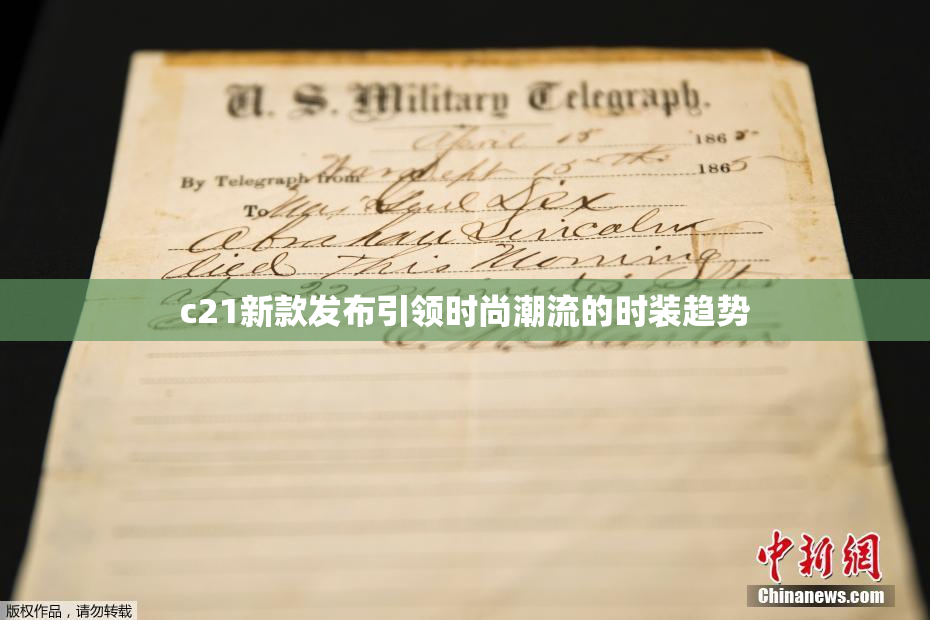 U. S. Military Telegraph.
April 15 1865
By Telegraph from Washn Sept 15th 1865
To Maj Genl Dix
Abraham Lincoln
died this Morning
at 22 minutes after
c21新款发布引领时尚潮流的时装趋势
E. M. Stanton
中新网
Chinanews.com
版权作品，请勿转载